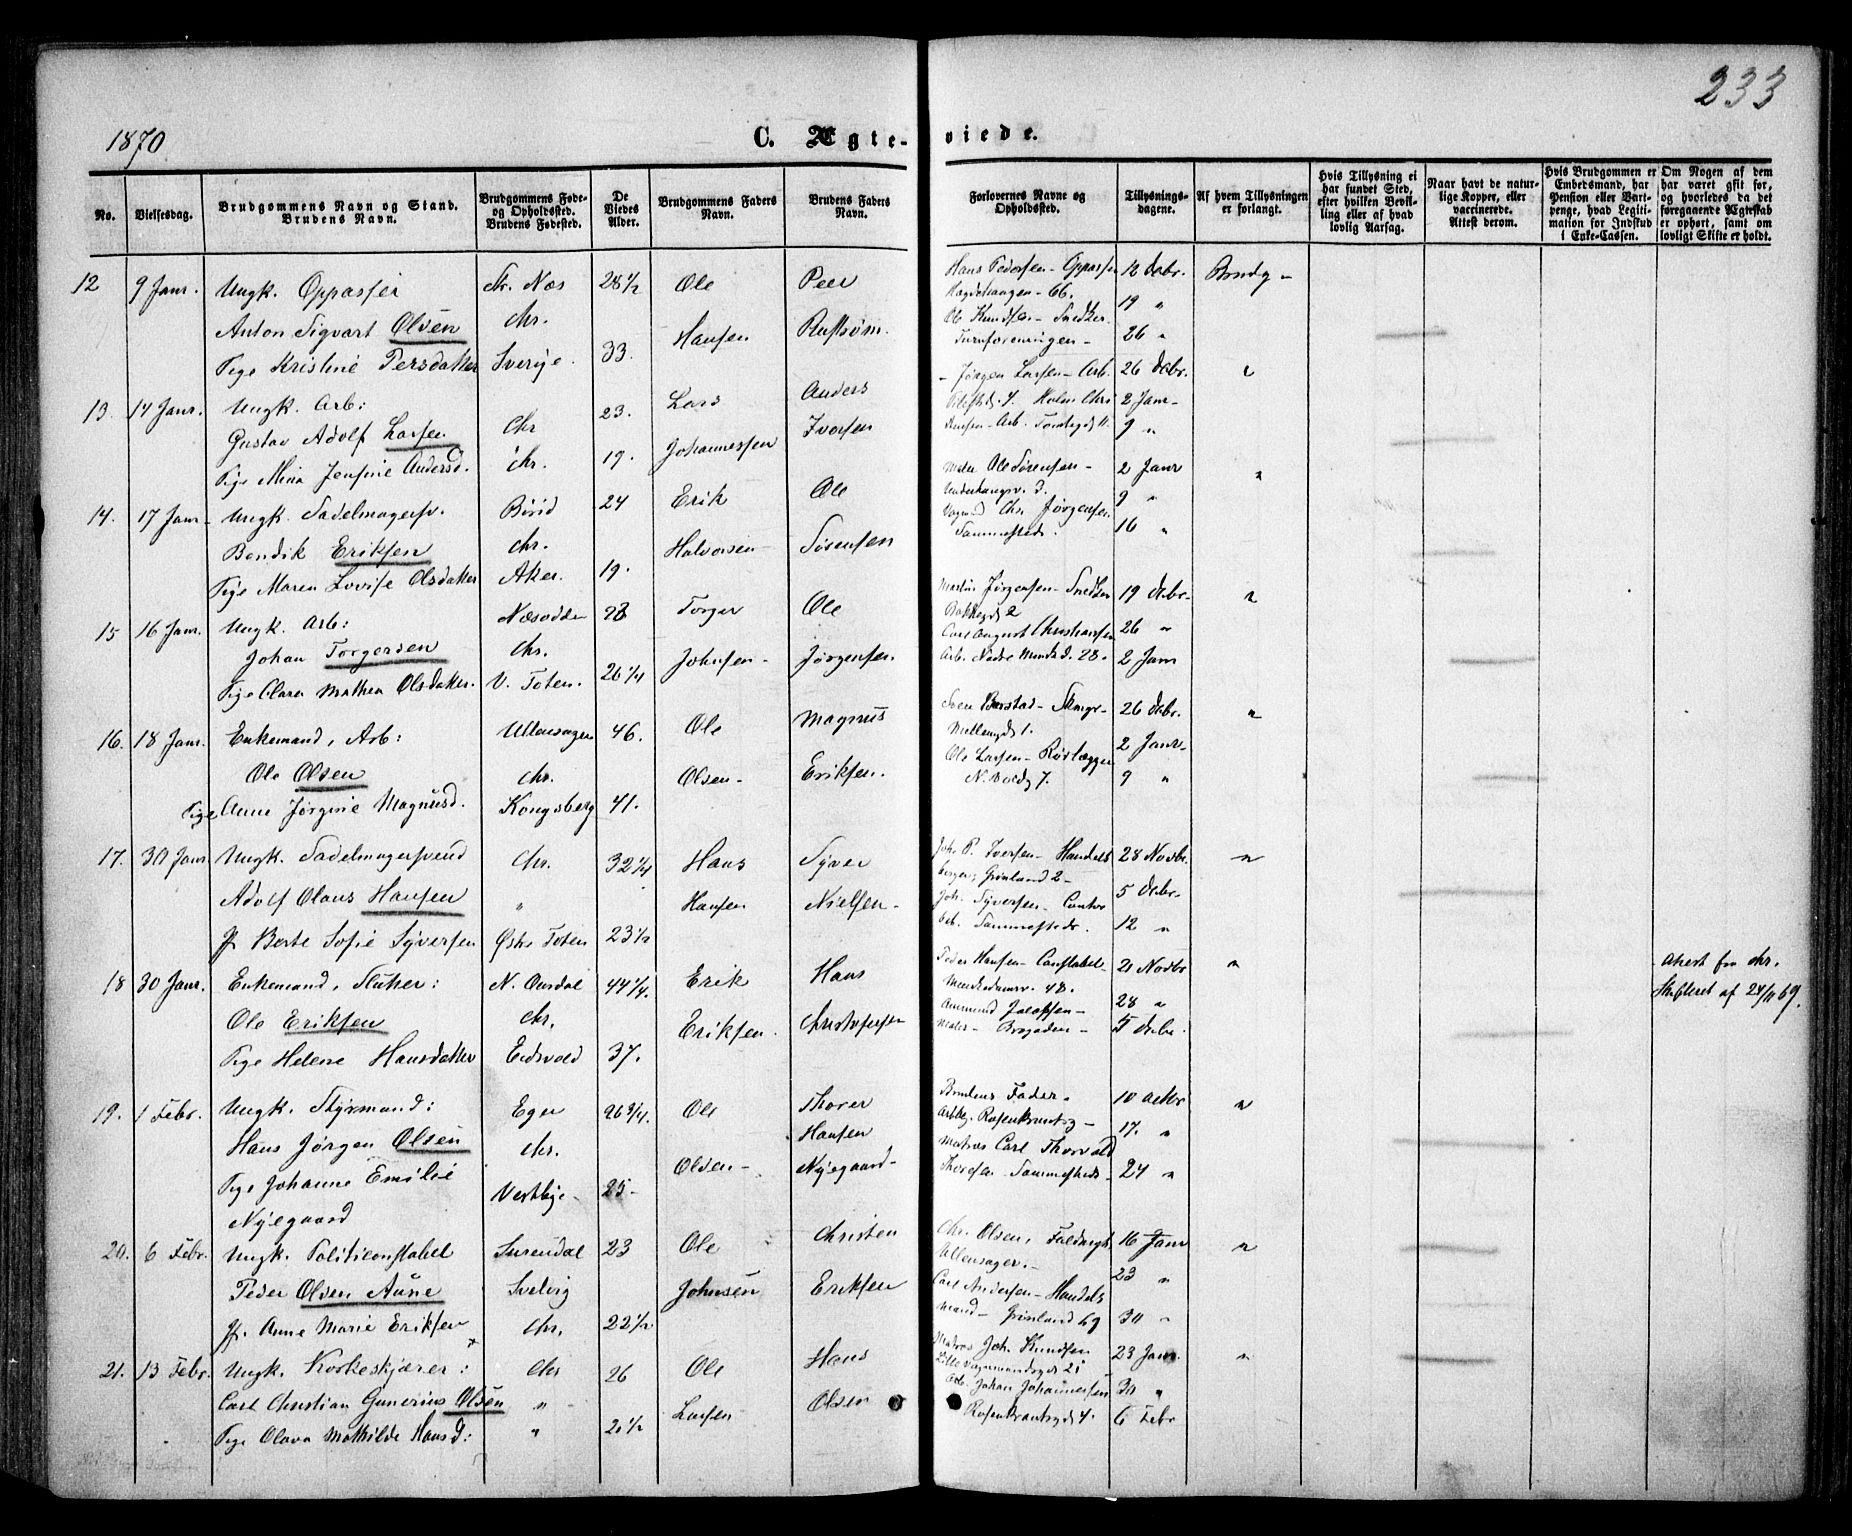 233
1870
C. Ægte-viede.
No.
Vielsesdag.
Brudgommens Navn og Stand.
Brudens Navn.
Brudgommens Føde-
og Opholdssted.
Brudens Fødested.
De
Viedes
Alder.
Brudgommens Faders
Navn.
Brudens Faders
Navn.
Forlovernes Navne og
Opholdssted.
Tillysnings-
dagene.
Af hvem Tillysningen
er forlangt.
Hvis Tillysning ei
har fundet Sted,
efter hvilken Bevil-
ling eller af hvad
lovlig Aarsag.
Naar havt de natur-
lige Kopper, eller
vaccinerede.
Attest derom.
Hvis Brudgommen er
Embedsmand, har
Pension eller Vart-
penge, hvad Legiti-
mation for Indskud
i Enke-Cassen.
Om Nogen af dem
har været gift før,
og hvorledes da det
foregaaende Ægteskab
er ophørt, samt om
lovligt Skifte er holdt.
12 9 Janr. Ungk. Oppasser Nr. Næs 28 1/2 Ole Peer Hans Pedersen - Oppasser 12 Debr. Brudg -
66. 19 "
Anton Sigvart Olsen Chr. Hansen Knudsen - Snedker
Turnforeningen - 26 "
Pige Kristine Persdatter Sverige. 33.
13. 14 Janr. Ungk. Arb: Chr 23. Lars Anders - Jørgen Larsen - Arb. 26 Debr. "
Gustav Adolf Larsen Johannessen Iversen 2 Janr -
Pige Mina Josefine Andersd. Chr. 19. Arb. 9 "
14. 17 Janr - Ungk. Sadelmagersv. Birid 24 Erik Ole Ole Sørensen - 2 Janr "
9 "
Bendik Eriksen Chr. Halvorsen - Sørensen Chr. Jørgensen
Sammesteds. 16 "
Pige Maren Lovise Olsdatter Aker. 19.
15 16 Janr. Ungk. Arb: Næsodden 28 Torger Ole Martin Jørgensen - Snedker 19 Debr - "
Bakkegd 2
Johan Torgersen Chr. Johnsen - Jørgensen. Carl August Christiansen 26 "
Arb. Nedre 28. 2 Janr
Pige Clara Mathea Olsdatter. V. Toten. 26 1/4
16. 18 Janr. Enkemand, Arb: Ullensager 46. Ole Magnus Sven 26 Debr. "
Møllergd 1.
Ole Olsen Chr. Olsen - Eriksen. Ole Larsen - Rørlægger 2 Janr -
7. 9 "
Pige Anne Jørgine Magnusd. Kongsberg 41.
17. 30 Janr Ungk. Sadelmagersvend Chr. 32 1/4 Hans Syver Joh. P. Iversen - Handels 28 Novbr. "
borger, Grønland 2 -
Adolf Olaus Hansen " Hansen Nielsen - Joh. Syversen - Contor 5 Debr.
bet. Sammesteds. 12 "
Jf. Berte Sofie Syversen Østre Toten 23 1/2
18 30 Janr. Enkemand, Slutter: N. Aurdal 44 1/4. Erik Hans Peder Hansen - Constabel - 21 Novbr " Attest fra Chr.
48. Skifteret af 24/11 69.
Ole Eriksen Chr. Eriksen. Christofersen Ammund Jacobsen - 28 "
Maler - 5 Debr.
Pige Helene Hansdatter Eidsvold 37.
19. 1 Febr. Ungk. Styrmand: Eger 26 3/4. Ole Thorer Brudens Fader. 10 Octbr "
Rosenkrantsg - 17. "
Hans Jørgen Olsen Chr. Hansen Matros Carl Thorvald
Olsen - Nyegaard - Thoresen Sammesteds - 24 "
Pige Johanne Emilie Vestbye - 25 -
Nyegaard
20. 6 Febr. Ungk. Politiconstabel Surendal 23 Ole Christen Chr. Olsen, 16 Janr "
Ullensager. -
23 "
Peder Olsen Aune Svelvig Johnsen Eriksen Carl Andersen - Handels
mand - Grønland 69 30 "
Jf. Anne Marie Eriksen Chr. 22 1/2
21. 13 Febr. Ungk. Korkeskjærer: Chr 26 Ole Hans Matros Joh. Knudsen 23 Janr. "
Lille Vognmandsgd 21
Carl Christian Gunerius Olsen " Larsen Olsen Arb. Johan Johannessen 30 "
Rosenkrantsgd 4. 6 Febr
Pige Olava Mathilde Hansd: " 21 1/2